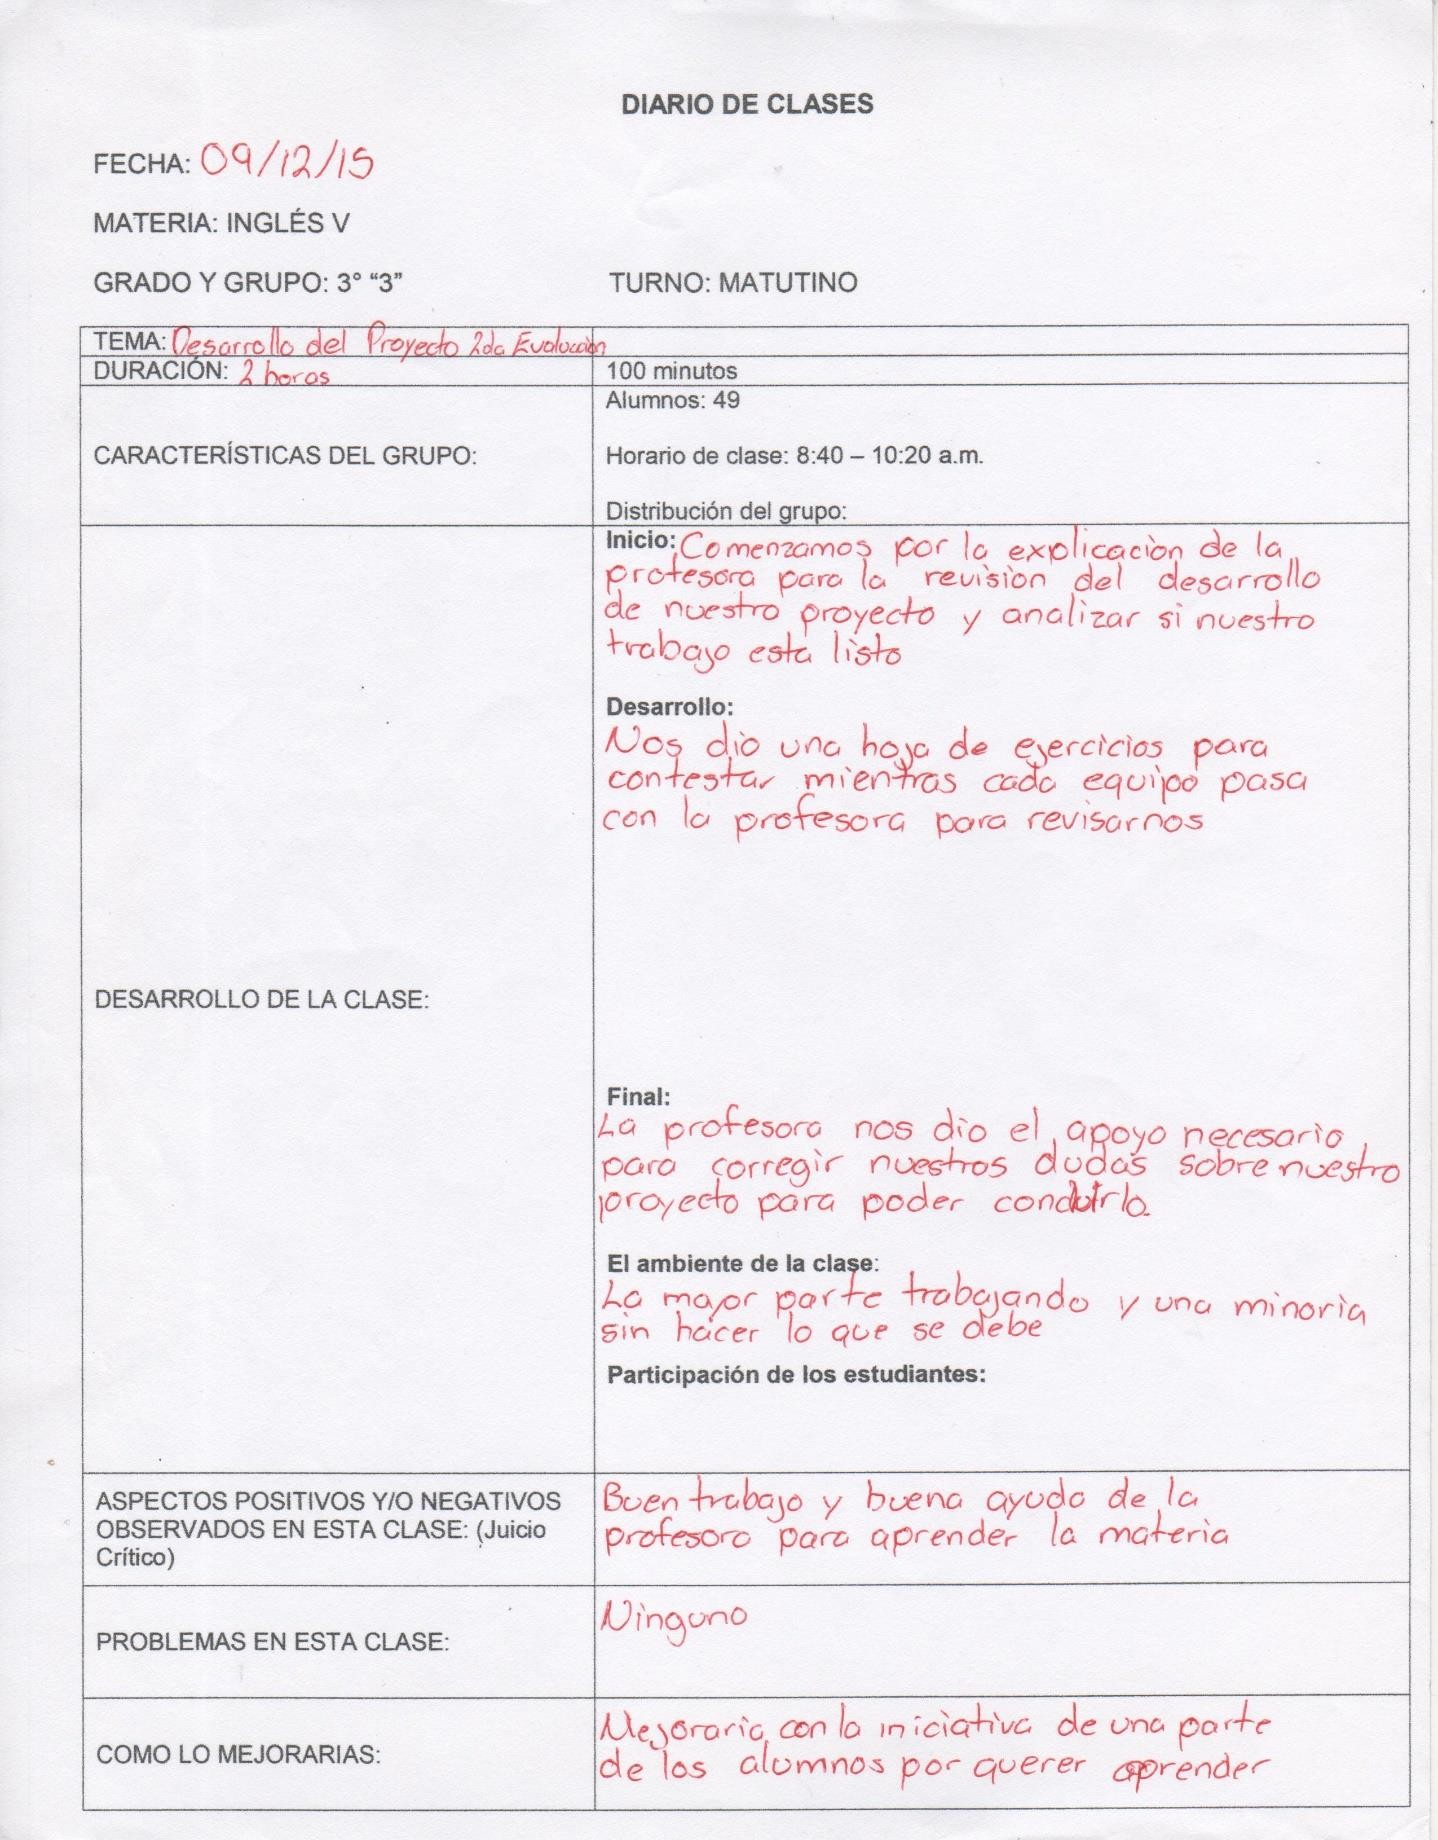 DIARIO DE CLASES
FECHA: 09/12/15
MATERIA: INGLÉS V
GRADO Y GRUPO: 3° “3” TURNO: MATUTINO
TEMA: Desarrollo del Proyecto 2da Evaluación
DURACIÓN: 2 horas 100 minutos
Alumnos: 49
CARACTERÍSTICAS DEL GRUPO: Horario de clase: 8:40 – 10:20 a.m.
Distribución del grupo:
DESARROLLO DE LA CLASE:
Inicio: Comenzamos por la explicación de la
profesora para la revisión del desarrollo
de nuestro proyecto y analizar si nuestro
trabajo está listo
Desarrollo:
Nos dio una hoja de ejercicios para
contestar mientras cada equipo pasa
con la profesora para revisarnos
Final:
La profesora nos dio el apoyo necesario
para corregir nuestros dudas sobre nuestro
proyecto para poder
El ambiente de la clase:
La mayor parte trabajando y una minoría
sin hacer lo que se debe
Participación de los estudiantes:
ASPECTOS POSITIVOS Y/O NEGATIVOS
OBSERVADOS EN ESTA CLASE: (Juicio
Crítico)
Buen trabajo y buena ayuda de la
profesora para aprender la materia
PROBLEMAS EN ESTA CLASE:
Ninguno
COMO LO MEJORARIAS:
Mejoraria con la iniciativa de una parte
de los alumnos por querer aprender